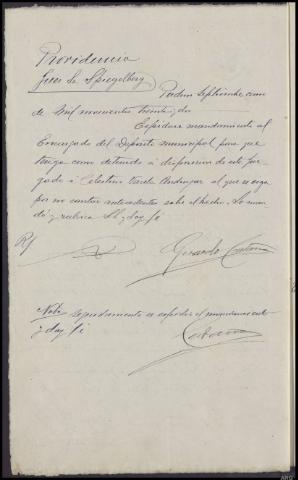 Providencia
Juez Sr. Spiegelberg
Padron Septiembre cinco
de Mil novecientos treinta y dos
Expidase mandamiento al
Encargado del Deposito municipal para que
tenga como detenido a disposicion de este Juz-
gado á Celestino Varela al que se
por no constar antecedentes sobre el hecho. Lo man-
dó y rubrica Sª y doy fé
Rf
Gerardo
Nota Seguidamente se expidió el mandamiento
y doy fé